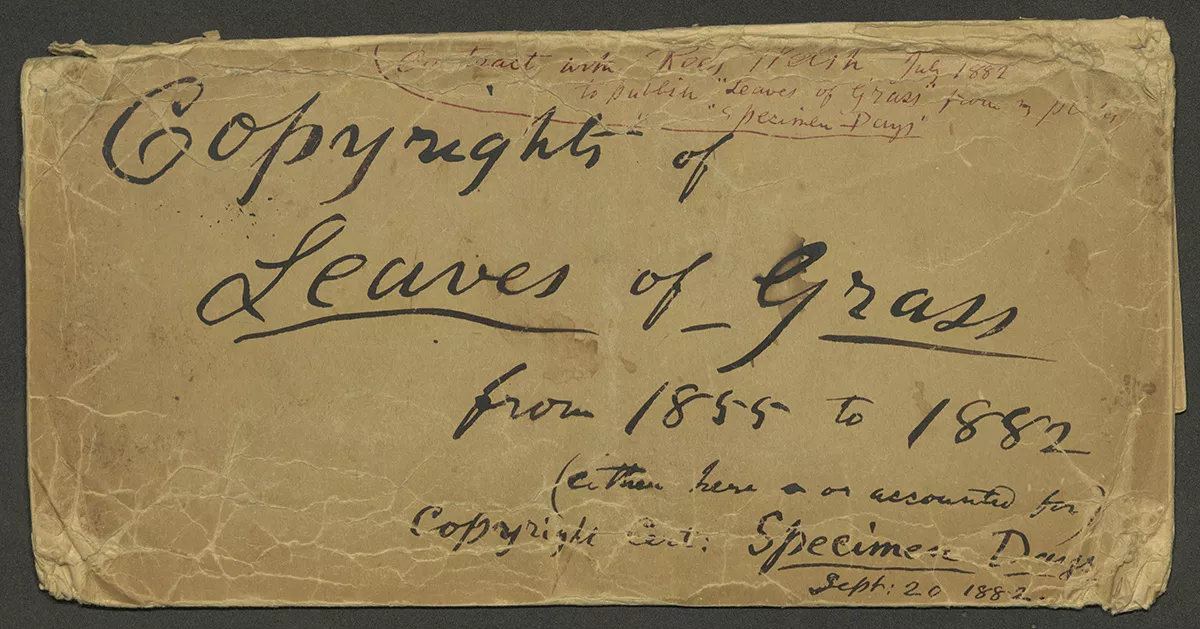 (Contract with Rees Welsh July 1882
to publish "Leaves of Grass" from my plates
"Specimen Days"
Copyrights of
Leaves of Grass
from 1855 to 1882
(either here or accounted for)
Copyright Cert: Specimen Days
Sept: 20 1882.